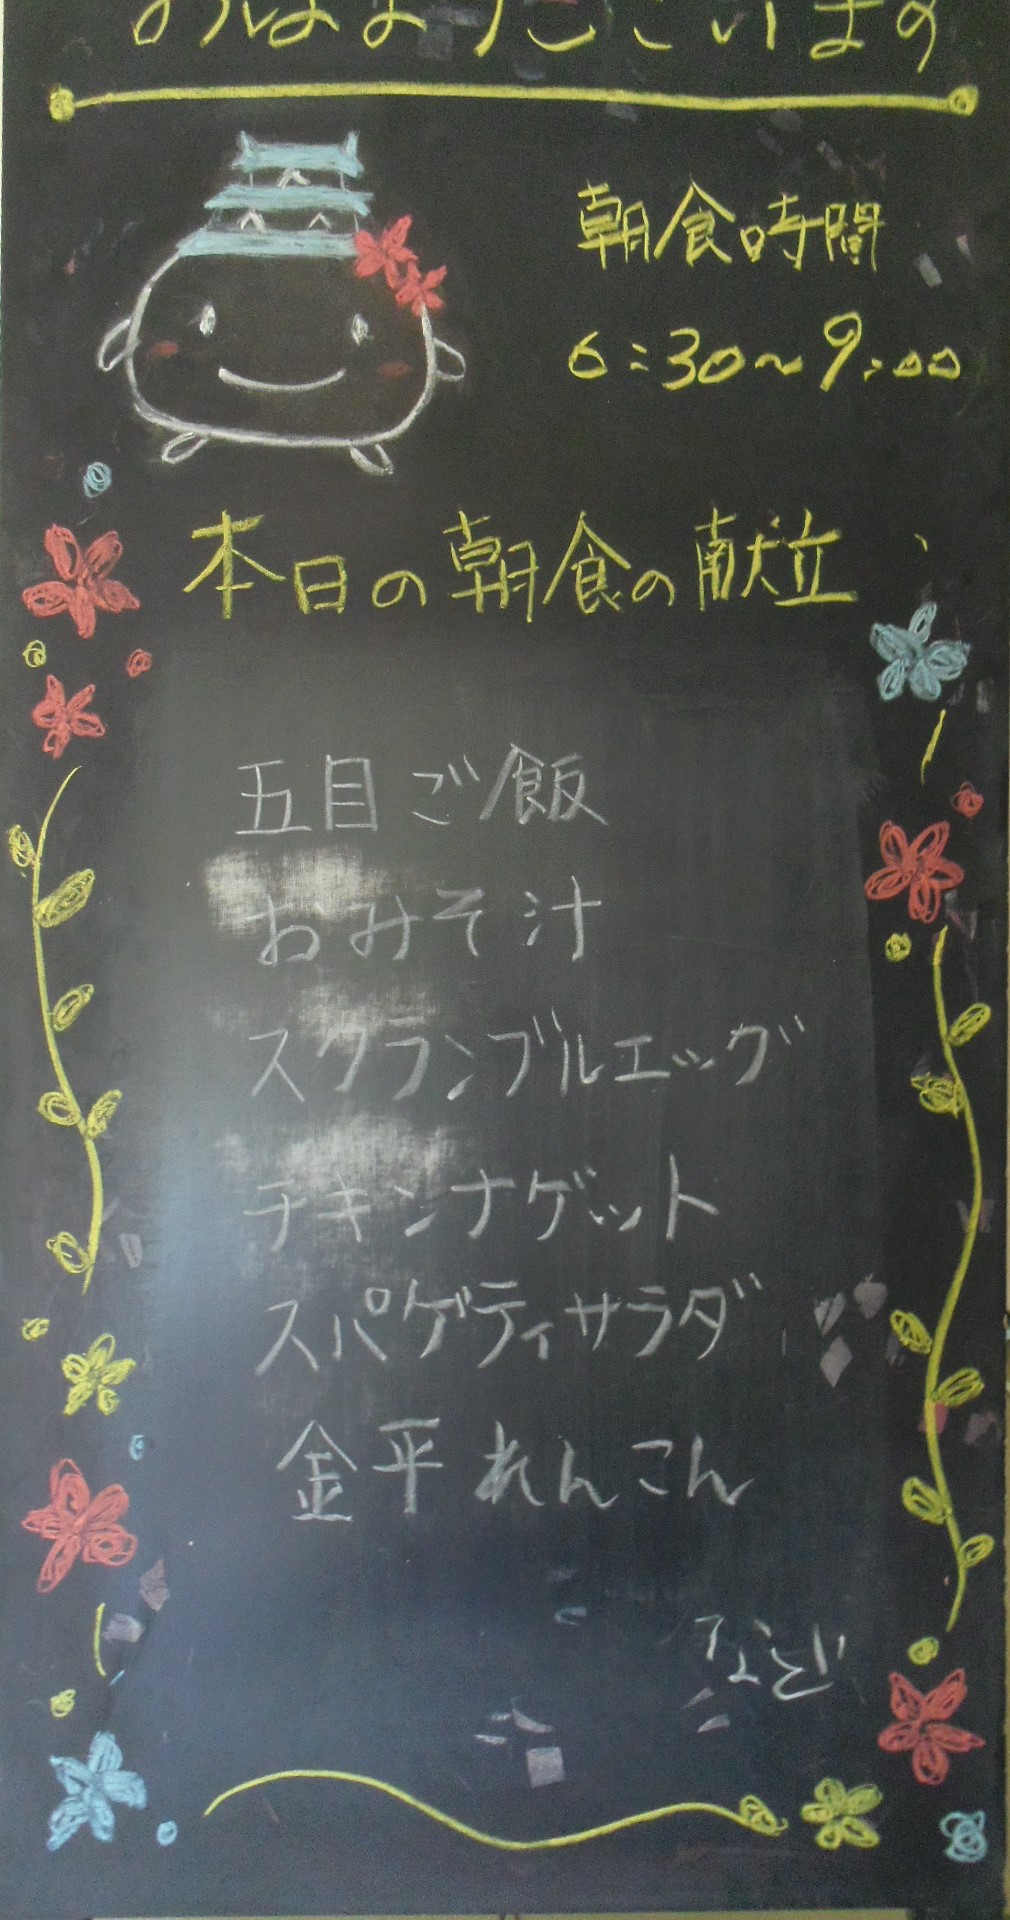 おはようございます
朝食時間
6:30～9:00
本日の朝食の献立
五目ご飯
おみそ汁
スクランブルエッグ
チキンナゲット
スパゲティサラダ
金平れんこん
など